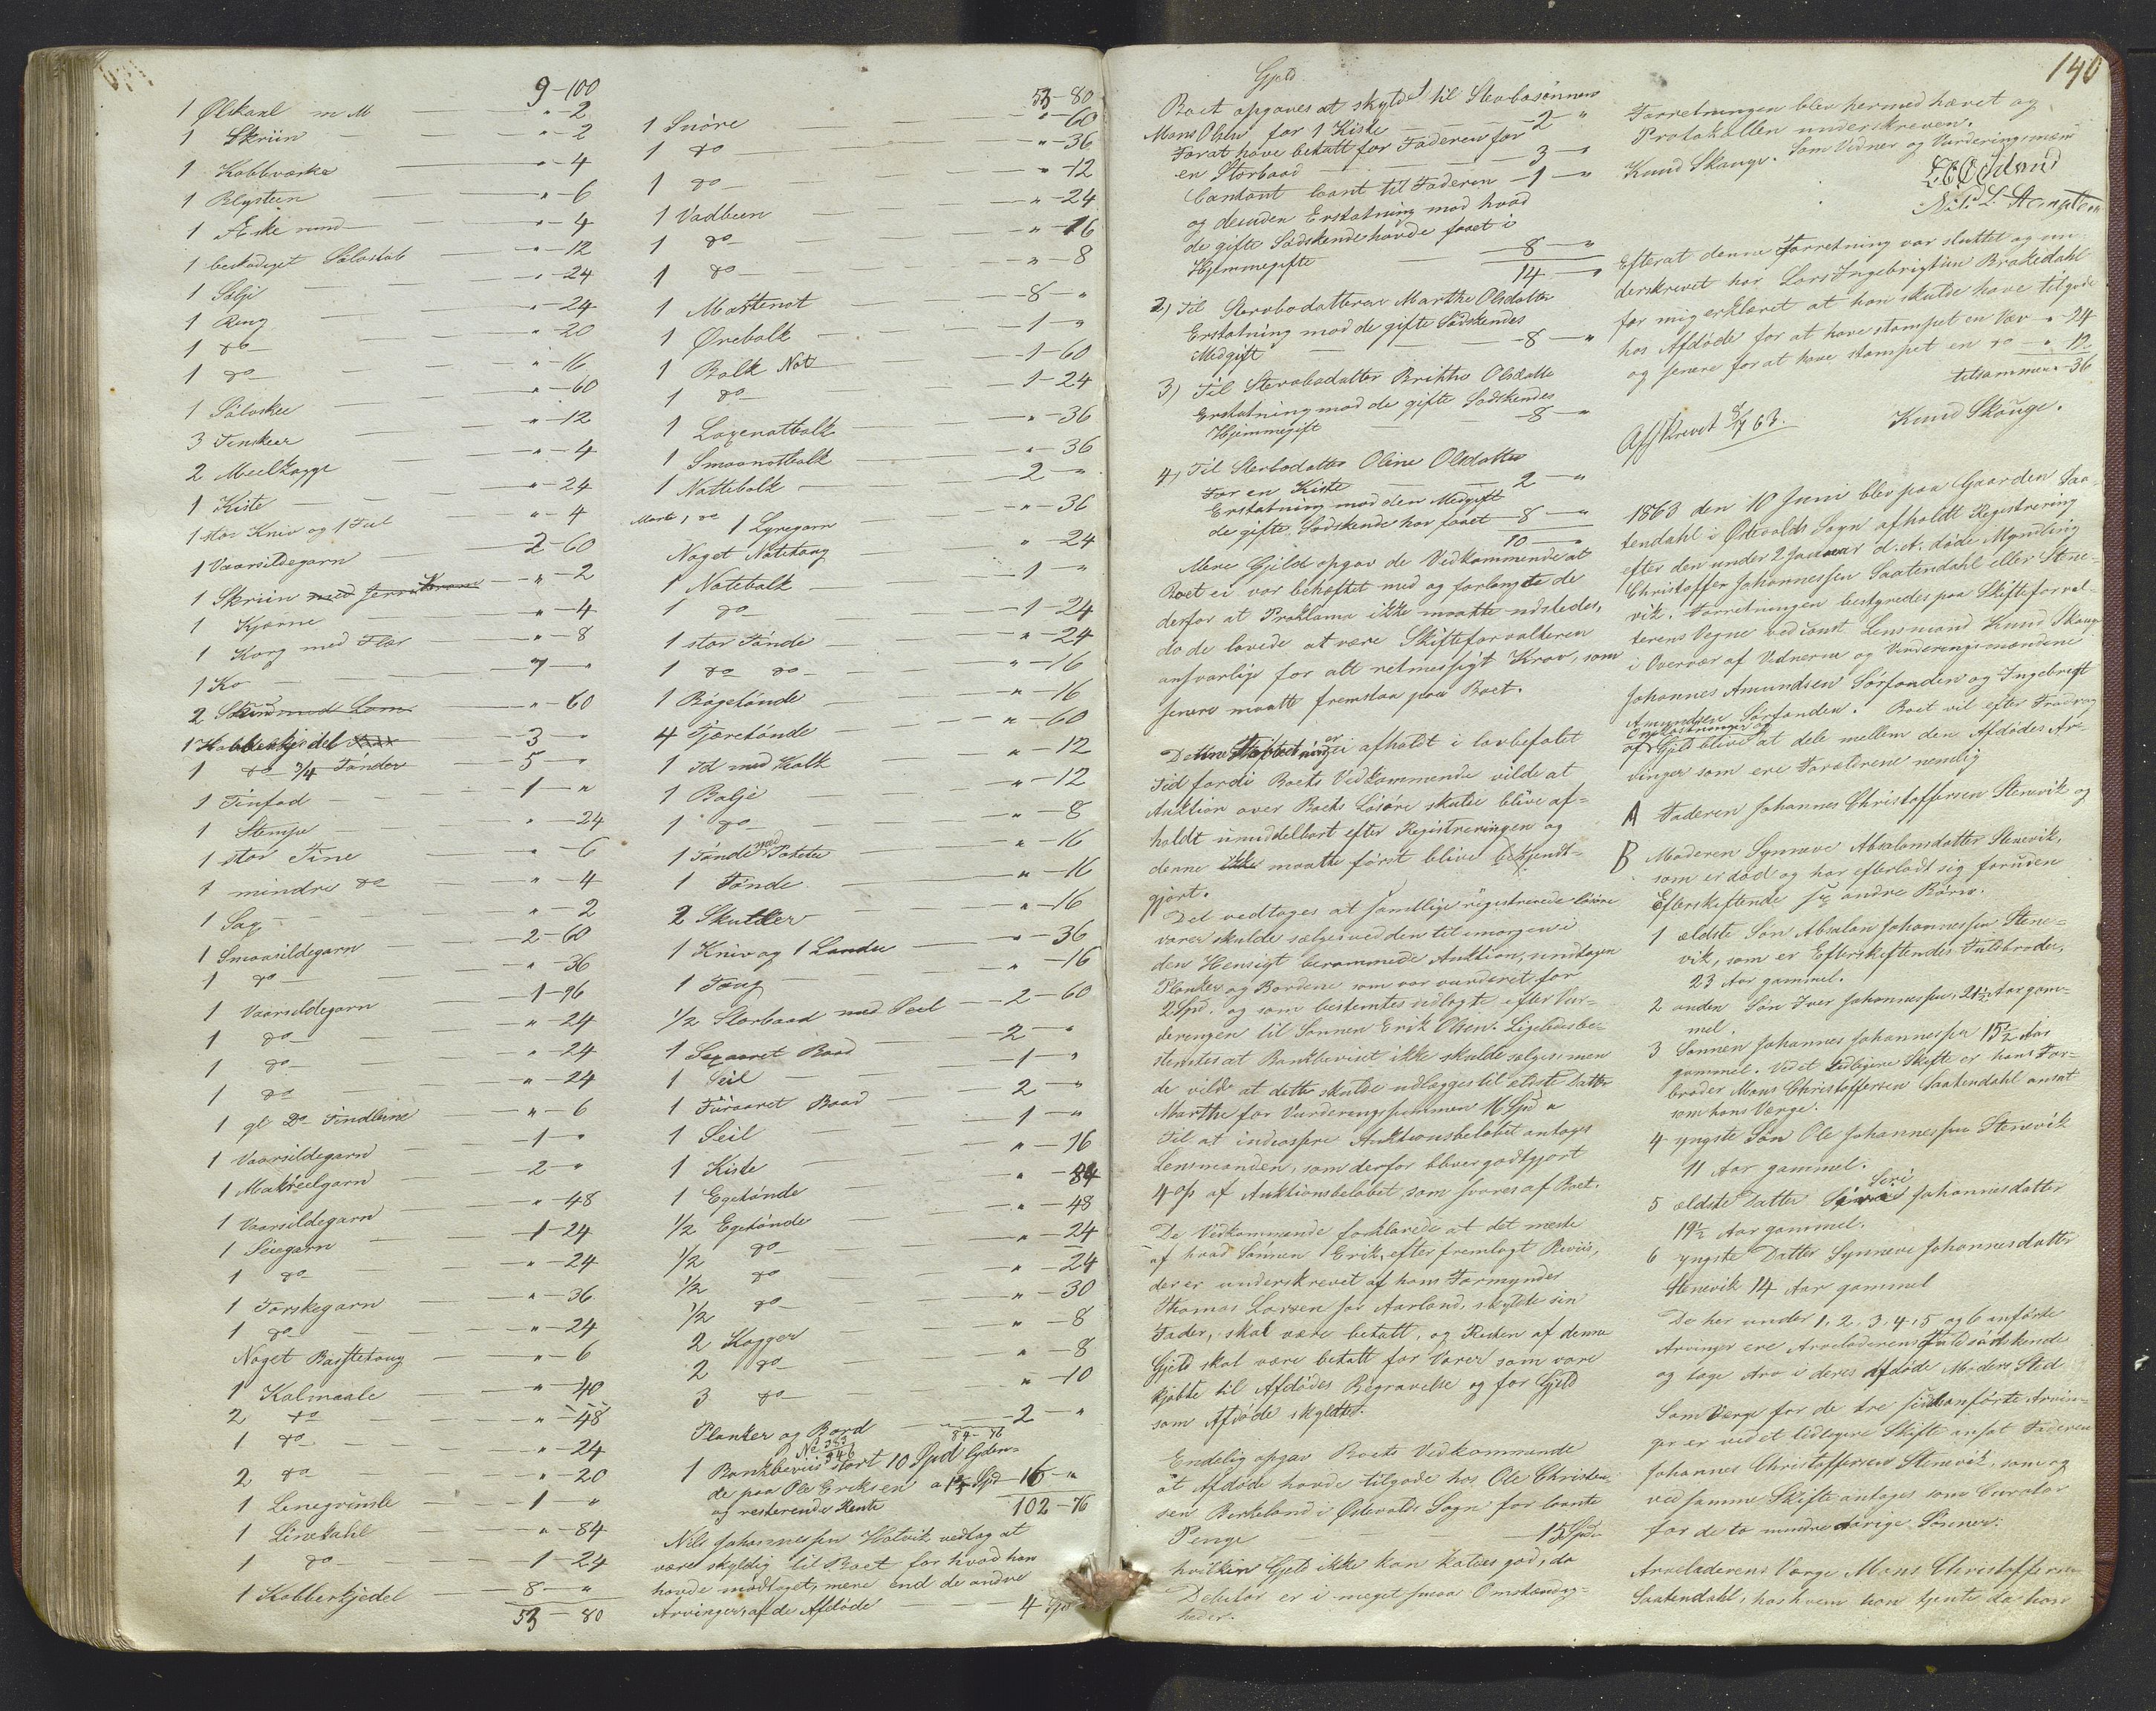 9-100
1 Ølskaal m M — " - 2
1 Skriin — " - 2
1 Kobberske — " - 4
1 Blysteen — " - 6
1 Æske rund — " - 4
1 beskadiget Sølvstob — " - 12
1 Sølje — " - 24
1 Ring — " - 24
1 do — " - 20
1 do — " - 16
1 Sølvskee — " - 60
3 Tinskeer — " - 12
2 Meelkagge — " - 4
1 Kiste — " - 24
1 stor Kniv og 1 Fiil — " - 4
1 Vaarsildegarn — 2 - 60
1 Skriin — " - 2
1 Kjærne — " - 4
1 Korg med Flær — " - 8
1 Ko — 7 - "
2 — " - 60
1 Kobberkjedel — 3 - "
1 do 3/4 Tønder — 5 - "
3 Tinfad — 1 - "
1 Stempe — " - 24
1 stor Tine — " - 6
1 mindre do — " - 4
1 Sag — " - 2
1 Smaasildegarn — 2 - 60
1 do — " - 36
1 Vaarsildegarn — 1 - 96
1 do — " - 24
1 do — " - 24
1 do — " - 24
1 gl Do — " - 6
1 Vaarsildegarn — 1 - "
1 Makreelgarn — 2 - "
1 Vaarsildegarn — " - 48
1 Seiegarn — 1 - 24
1 do — " - 24
1 Torskegarn — " - 36
1 do — " - 24
Noget Basttehoug — " - 6
1 Kalmaale — " - 40
2 do — " - 48
1 do — " - 24
2 do — " - 20
1 Linegrimle — 1 - "
1 Linestahl — " - 84
1 do — 1 - 24
1 Kobberkjedel — 8 - "
53 - 80
53 - 80
1 Snöre — " - 60
1 do — " - 36
1 do — " - 12
1 Vadbeen — " - 24
1 do — " - 16
1 do — " - 8
1 Mortenot — 8 - "
1 Ørebolk — 1 - "
1 Bolk Not — 1 - 60
1 do — 1 - 24
1 Laxenotbolk — " - 36
1 Smaanotbolk — " - 36
1 Nottebolk — 2 - "
1 Lyregarn — " - 36
Noget Notetoug — " - 24
1 Notebolk — 1 - "
1 do — 1 - 24
1 stor Tønde — " - 24
1 do do — " - 16
1 Bøgetønde — " - 16
4 Tjæretønde — " - 60
1 td med Kalk — " - 12
1 Balje — " - 12
1 do — " - 8
1 Tønde med Poteter — " - 16
1 Tønde — " - 16
2 Skuttler — " - 16
1 Kniv og 1 — " - 36
1 Toug — " - 16
1/2 Storbaad med Seil — 2 - 60
1 Sexaaret Baad — 2 - "
1 Seil — 1 - "
1 Firaaret Baad — 2 - "
1 Seil — 1 - "
1 Kiste — " - 16
1 Egetønde — " - 84
1/2 Egetønde — " - 48
1/2 do — " - 24
1/2 do — " - 24
1/2 do — " - 30
2 Kagger — " - 8
2 do — " - 8
3 do — " - 10
Planker og Bord — 2 - "
84 - 76
1 Bankbeviis No 383/346 stort 10 Spd lyden-
de paa Ole Eriksen a Spd 16 - "
og resterende Rente 102 - 76
Nils Johannessen Hatvik vedtog at
være skyldig til Boet for hvad han
havde modtaget, mere end de andre
Arvinger, af de Afdøde — 4 Spd
Gjeld.
Boet opgaves at skylde 1 til Sterbosønnen
Mons Olsen for 1 Kiste 2 - "
For at have betalt for Faderen for
en Storbaad — 3 - "
Contant laant til Faderen — 1 - "
og desuden Erstatning mod hvad
de gifte Sødskende havde faaet i
Hjemmegifte — 8 - "
14 - "
2) Til Sterbodatteren Marthe Olsdatter
Erstatning mod de gifte Sødskendes
Medgift — 8 - "
3) Til Sterbodatter Brithe Olsdatter
Erstatning mod de gifte Sødskendes
Hjemmegift — 8 - "
4) Til Sterbodatter Oline Olsdatter
For en Kiste — 2 - "
Erstatning mod den Medgift
de gifte Sødskende har faaet 8 - "
10 - "
Mere Gjeld opgav de Vedkommende at
Boet ei var behæftet med og forlangte de
derfor at Proklama ikke maatte udstedes,
da de lovede at være Skifteforvalteren
ansvarlige for alt retmessigt Krav, som
senere maatte fremstaa paa Boet.
Denne er ei afholdt i lovbefalet
Tid fordi Boets Vedkommende vilde at
Auktion over Boets Løsøre skulde blive af-
holdt umiddelbart efter Registreringen og
denne ikke maatte først blive bekjendt-
gjort.
Det vedtoges at samtlige registrerede Løsøre
varer skulde sælges ved den til imorgen i
den Hensigt berammede Auktion, undtagen
Planker og Bordene som var vurderet for
2 Spd. og som bestemtes udlagte efter Vur-
deringen til Sønnen Erik Olsen. Ligeledes be-
stemtes at Bankbeviset ikke skulde sælges; men
de vilde at dette skulde udlægges til eldste Datter
Marthe for Vurderingssummen 16 Spd "
Til at indcassere Auktionsbeløbet antoges
Lensmanden, som derfor bliver godtgjort
4 op af Auktionsbeløbet, som svares af Boet.
De Vedkommende forklarede at det meste
af hvad Sønnen Erik, efter fremlagt Beviis,
der er underskrevet af hans Formynder
Thomas Larsen for Aarland, skyldte sin
Fader, skal være betalt, og Resten af denne
Gjeld skal være betalt for Varer som vare
kjøbte til Afdødes Begravelse og for Gjeld
som Afdøde skyldte.
Endelig opgav Boets Vedkommende
at Afdøde havde tilgode hos Ole Christen-
sen Birkeland i Østevolds Sogn for laante
Penge — 15 Spd "
hvilken Gjeld ikke kan kaldes god, da
Debitor er i meget smaa Omstændig-
heder.
140
Forretningen blev hermed hævet og
Protokollen underskreven.
Knud Skauge. Som Vidner og Vurderingsmænd
Efterat denne Forretning var sluttet og un-
derskrevet har Lars Ingebrigtsen Brakedahl
for mig erklæret at han skulde have tilgode
hos Afdøde for at have stampet en Vav " - 24
og senere for at have stampet en do — " 12
tilsammen " - 36
Knud Skauge.
Afskrevet 8/7 63.
1863 den 10 Juni blev paa Gaarden Saa-
tendahl i Østevolds Sogn afholdt Registrering
efter den under 2 Januar d. A. døde Myndling
Christoffer Johannessen Saatendahl eller Stene-
vik. Forretningen bestyredes paa Skifteforval-
terens Vegne ved const. Lensmand Knud Skauge
i Overvær af Vidnerne og Vurderingsmændene
Johannes Amundsen Sørfonden og Ingebrigt
Amundsen Sørfonden. Boet vil efter Fradrag
af Omkostninger og Gjeld blive at dele mellem den Afdødes Ar-
vinger som ere Forældrene nemlig
A Faderen Johannes Christoffersen Stenevik og
B Moderen Synneve Absalonsdatter Stenevik,
som er død og har efterladt sig foruden
Efterskiftende andre Børn.
1 ældste Søn Absalon Johannessen Stene-
vik, som er Efterskiftendes Fuldbroder,
23 Aar gammel.
2 anden Søn Iver Johannessen, 21½ Aar gam-
mel
3 Sønnen Johannes Johannessen 15½ Aar
gammel. Ved et tidligere Skifte er hans Far-
broder Mons Christoffersen Saatendahl ansat
som hans Værge.
4 yngste Søn Ole Johannessen Stenevik
11 Aar gammel.
5 ældste Datter Siri Johannesdatter
19½ Aar gammel.
6 yngste Datter Synneve Johannesdatter
Stenevik 14 Aar gammel
De her under 1, 2, 3, 4, 5 og 6 anførte
Arvinger ere Arveladerens Fuldsødskende
og tage Arv i deres afdøde Moders Sted
Som Værge for de tre sidstanførte Arvin-
ger er ved et tidligere Skifte ansat Faderen
Johannes Christoffersen Stenevik, som og
ved samme Skifte antoges som Curator
for de to mindreaarige Sønner.
Arveladerens Værge Mons Christoffersen
Saatendahl, hos hvem han tjente da han